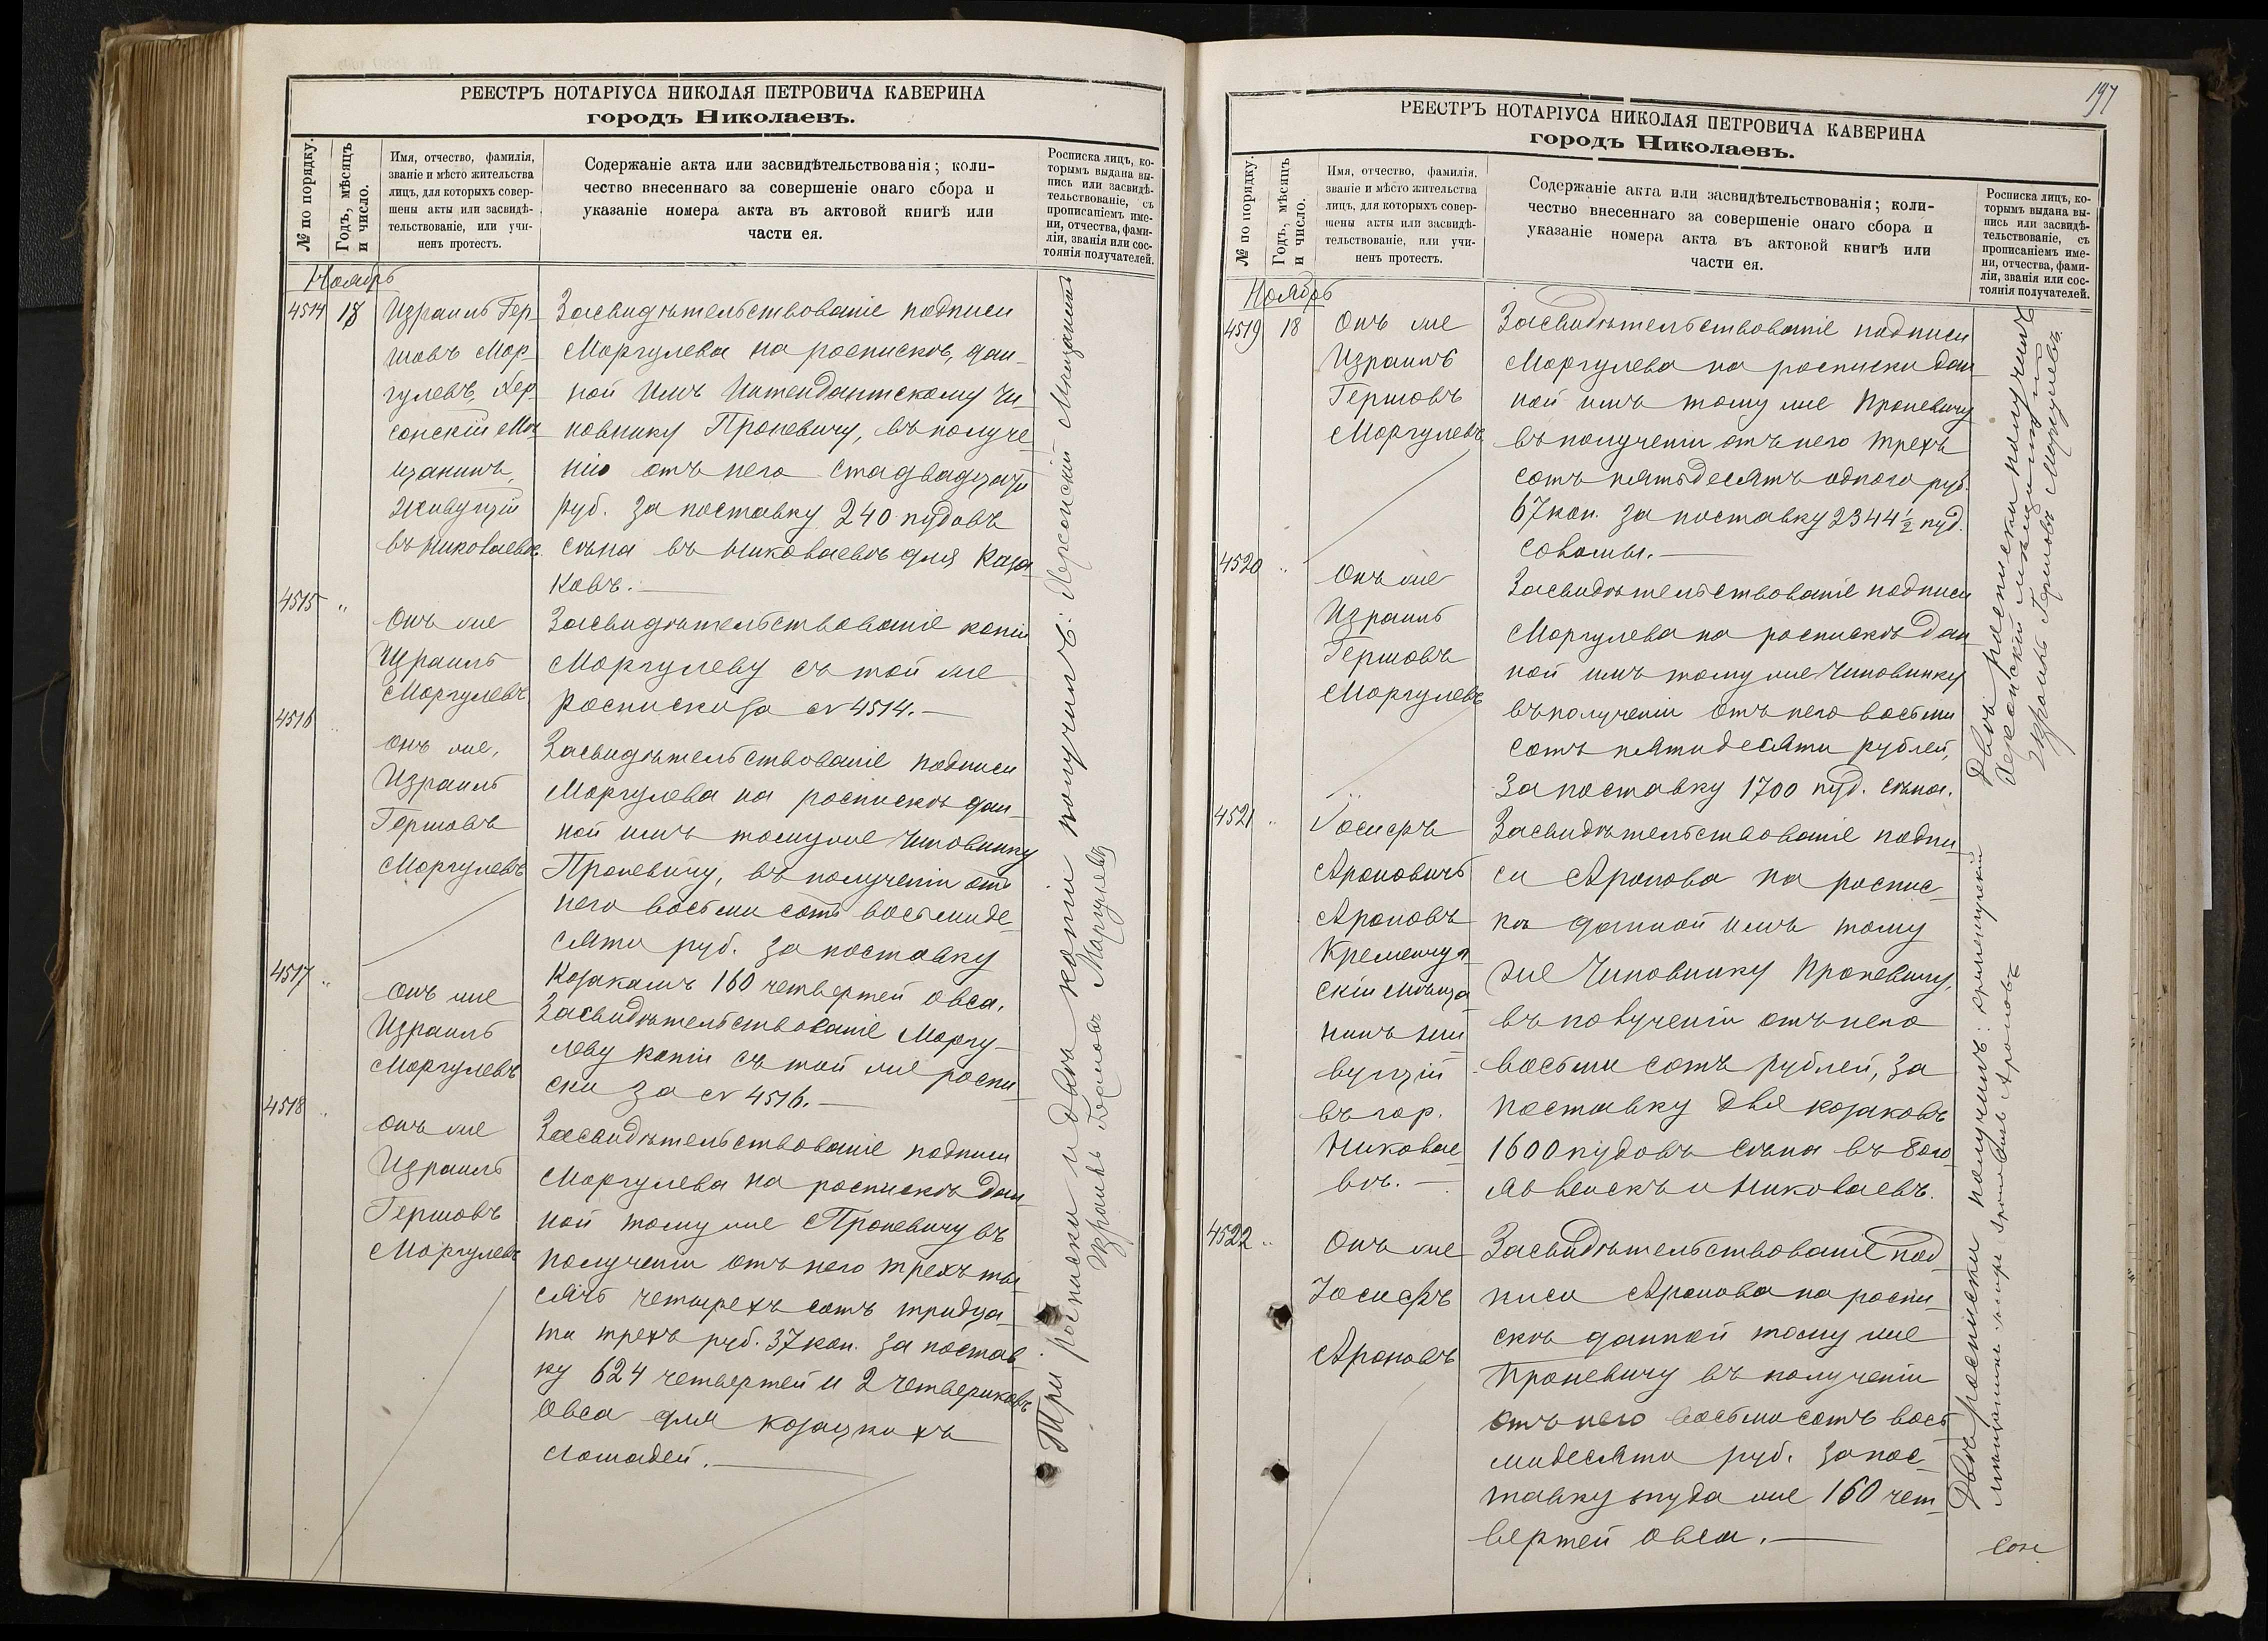 РЕЕСТРЪ НОТАРІУСА НИКОЛАЯ ПЕТРОВИЧА КАВЕРИНА
городъ Николаевъ.
№ по порядку.
Годъ, мѣсяцъ
и число.
Имя, отчество, фамилія,
званіе и мѣсто жительства
лицъ, для которыхъ совер-
шены акты или засвидѣ-
тельствованіе, или учи-
ненъ протестъ.
Содержаніе акта или засвидѣтельствованія; коли-
чество внесеннаго за совершеніе онаго сбора и
указаніе номера акта въ актовой книгѣ или
части ея.
Росписка лицъ, ко-
торымъ выдана вы-
пись или засвидѣ-
тельствованіе, съ
прописаніемъ име-
ни, отчества, фами-
ліи, званія или сос-
тоянія получателей.
Ноябрь
4514 18
Израиль Гер-
шовъ Мор-
гулевъ, Хер-
сонскій Мѣ-
щанинъ,
Живущій
въ Николаевѣ.
Засвидѣтельствованіе подписи
Моргулева на роспискѣ, дан-
ной имъ Интендантскому Чи-
новнику Проневичу, въ получе-
ніи отъ него стадвадцати
руб. за поставку 240 пудовъ
сѣна въ Николаевѣ для Каза-
ковъ.
4515 "
Онъ же
Израиль
Моргулевъ
Засвидѣтельствованіе копіи
Моргулеву съ той же
росписки за № 4514.
4516 "
Онъ же,
Израиль
Гершовъ
Моргулевъ
Засвидѣтельствованіе подписи
Моргулева на роспискѣ дан-
ной имъ томуже Чиновнику
Проневичу, въ полученіи отъ
него восьми сотъ восьмиде-
сяти руб. за поставку
Козакамъ 160 четвертей овса.
4517 "
Онъ же
Израиль
Моргулевъ
Засвидѣтельствованіе Моргу-
леву копіи съ той же роспи-
ски за № 4516.
4518 "
Онъ же
Израиль
Гершовъ
Моргулевъ
Засвидѣтельствованіе подписи
Моргулева на роспискѣ дан-
ной тому же Проневичу въ
полученіи отъ него трехъ ты-
сячъ четырехъ сотъ тридца-
ти трехъ руб. 37 коп. за постав-
ку 624 четвертей и 2 четвериковъ
овса для козацкихъ
лошадей.
Три росписки и двѣ копіи получилъ: Херсонскій Мѣщанинъ
Израиль Моргулевъ
197
РЕЕСТРЪ НОТАРІУСА НИКОЛАЯ ПЕТРОВИЧА КАВЕРИНА
городъ Николаевъ.
№ по порядку.
Годъ, мѣсяцъ
и число.
Имя, отчество, фамилія,
званіе и мѣсто жительства
лицъ, для которыхъ совер-
шены акты или засвидѣ-
тельствованіе, или учи-
ненъ протестъ.
Содержаніе акта или засвидѣтельствованія; коли-
чество внесеннаго за совершеніе онаго сбора и
указаніе номера акта въ актовой книгѣ или
части ея.
Росписка лицъ, ко-
торымъ выдана вы-
пись или засвидѣ-
тельствованіе, съ
прописаніемъ име-
ни, отчества, фами-
ліи, званія или сос-
тоянія получателей.
Ноябрь
4519 18
Онъ же
Израиль
Гершовъ
Моргулевъ
Засвидѣтельствованіе подписи
Моргулева на росписки дан-
ной имъ тому же Проневичу
въ полученіи отъ него трехъ
сотъ пятьдесятъ одного руб.
67 коп. за поставку 2344 1/2 пуд.
соломы.
4520 "
Онъ же
Израиль
Гершовъ
Моргулевъ
Засвидѣтельствованіе подписи
Моргулева на роспискѣ дан-
ной имъ тому же Чиновнику
въ полученіи отъ него восьми
сотъ пятидесяти рублей,
за поставку 1700 пуд. сѣна.
4521 "
Іосифъ
Ароновичъ
Ароновъ
Кременчуг-
скій Мѣща-
нинъ жи-
вущій
въ гор.
Николае-
вѣ.
Засвидѣтельствованіе подпи-
си Аронова на роспис-
кѣ данной имъ тому
же Чиновнику Проневичу,
въ полученіи отъ него
восьми сотъ рублей, за
поставку для козаковъ
1600 пудовъ сѣна въ Бого-
явленскъ и Николаевъ.
4522 "
Онъ же
Іосифъ
Ароновъ
Засвидѣтельствованіе под-
писи Аронова на роспи-
скѣ данной тому же
Проневичу въ полученіи
отъ него восьми сотъ вось-
мидесяти руб. за пос-
тавку туда же 160 чет-
вертей овса.
Двѣ росписки получилъ
Херсонскій мѣщанинъ
Израиль Гершовъ Моргулевъ.
Двѣ росписки получилъ: кременчугскій
мѣщанинъ Ароновъ